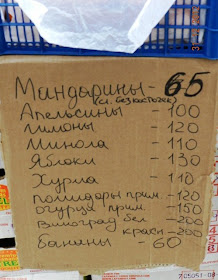 Мандарины - 65
(сл. без косточек)
Апельсины - 100
лимоны - 120
Минола - 110
Яблоки - 130
Хурма - 110
помидоры прим. - 120
огурцы прим. - 150
Виноград бел - 200
красн - 200
бананы - 60